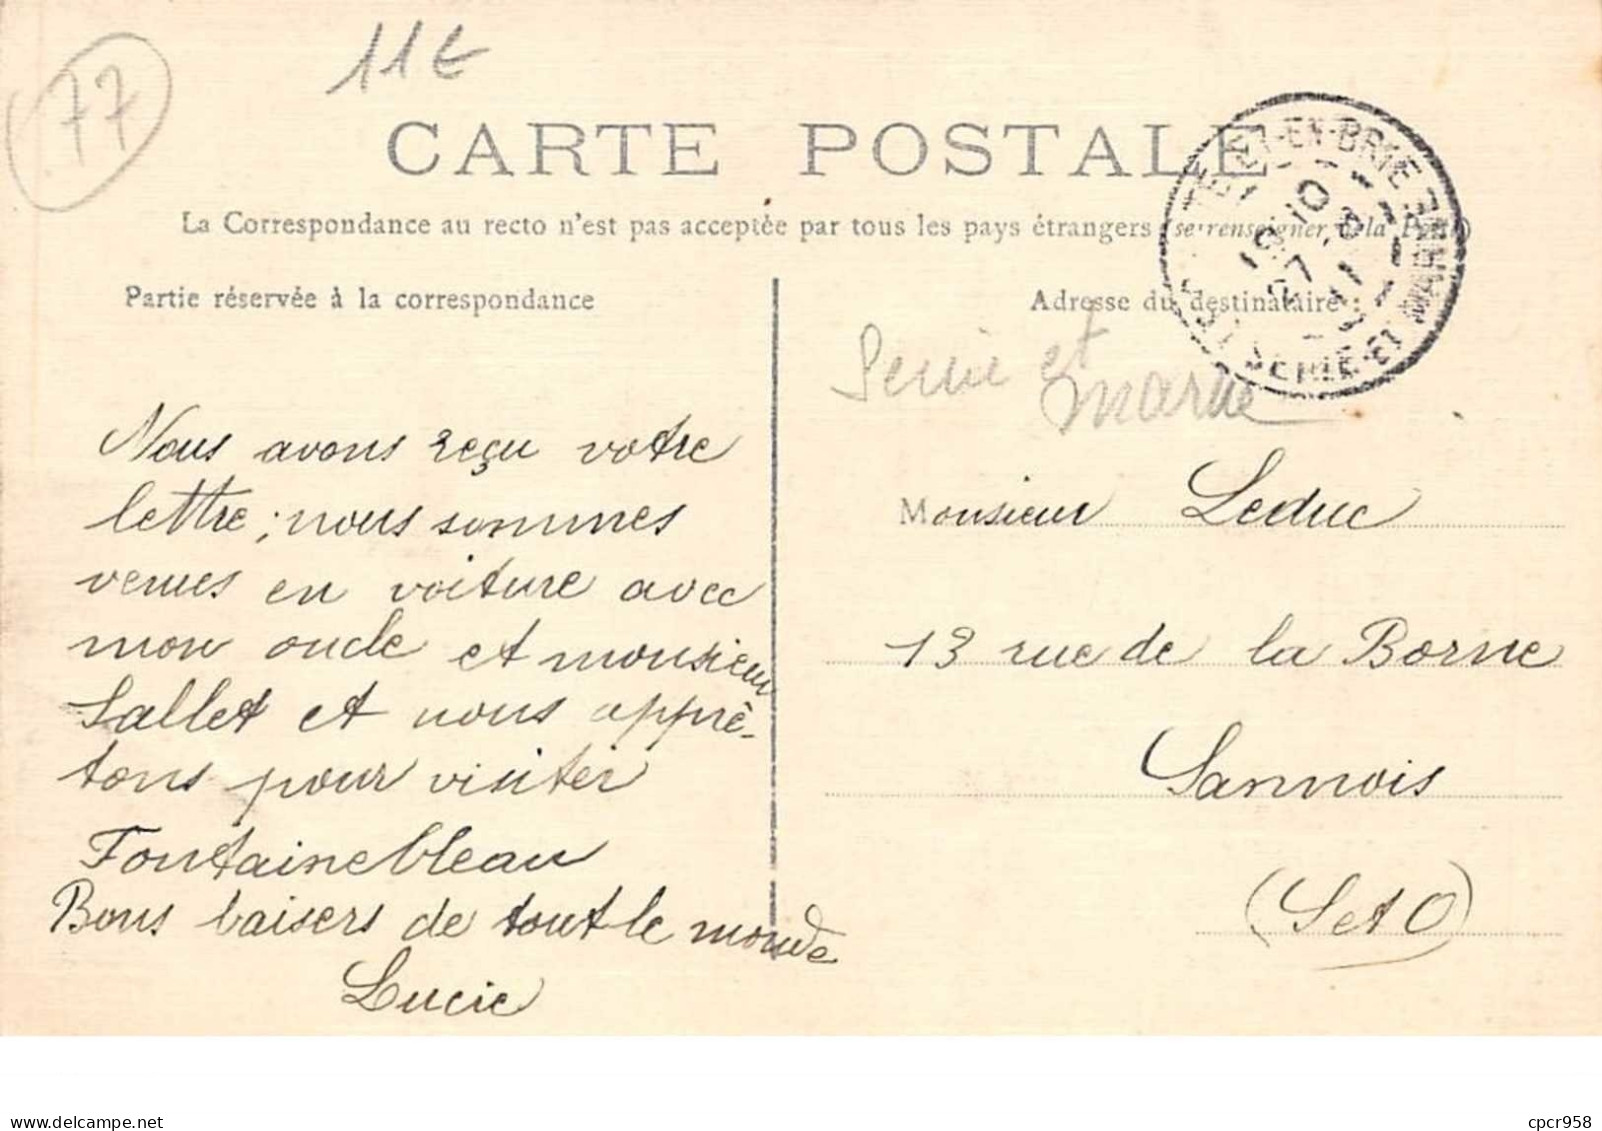 77
11€
CARTE POSTALE
La Correspondance au recto n'est pas acceptée par tous les pays étrangers (se renseigner à la Poste)
Partie réservée à la correspondance
Adresse du destinataire :
EN-BRIE
SEINE-ET-MARNE
Seine et
marne
Nous avons reçu votre
lettre ; nous sommes
venues en voiture avec
mon oncle et monsieur
Sallet et nous apprê-
tons pour visiter
Fontainebleau
Bons baisers de tout le monde
Lucie
Monsieur Leduc
13 rue de la Borne
Sannois
(S et O)
delcampe.net
cpcr958